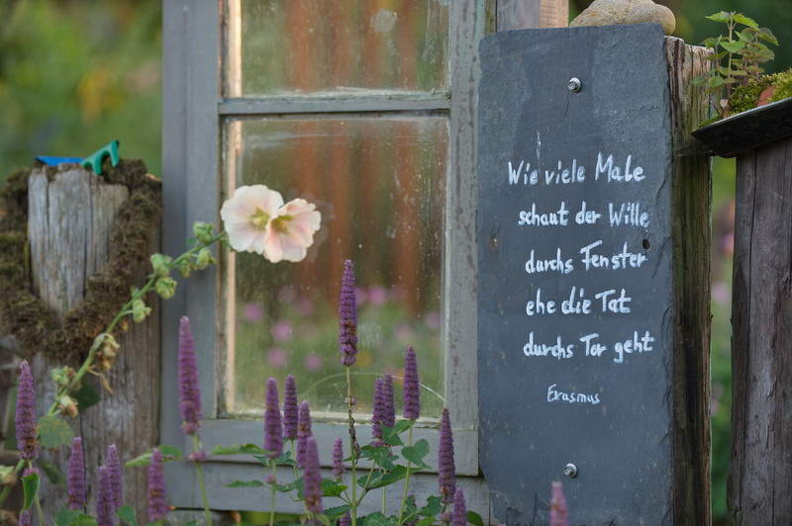 Wie viele Male
schaut der Wille
durchs Fenster
ehe die Tat
durchs Tor geht
Erasmus